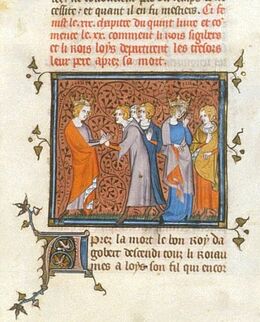 cessite, et quant il en fu mestiers. Ci fe
nist le .xix. chapitre du quint livre et co
mence le .xx. comment li rois sigibers
et li rois loys departirent les tresors
leur pere apres sa mort.
Apres la mort le bon Roy da
gobert descendi tout li roiau
mes a loys son fil qui encor